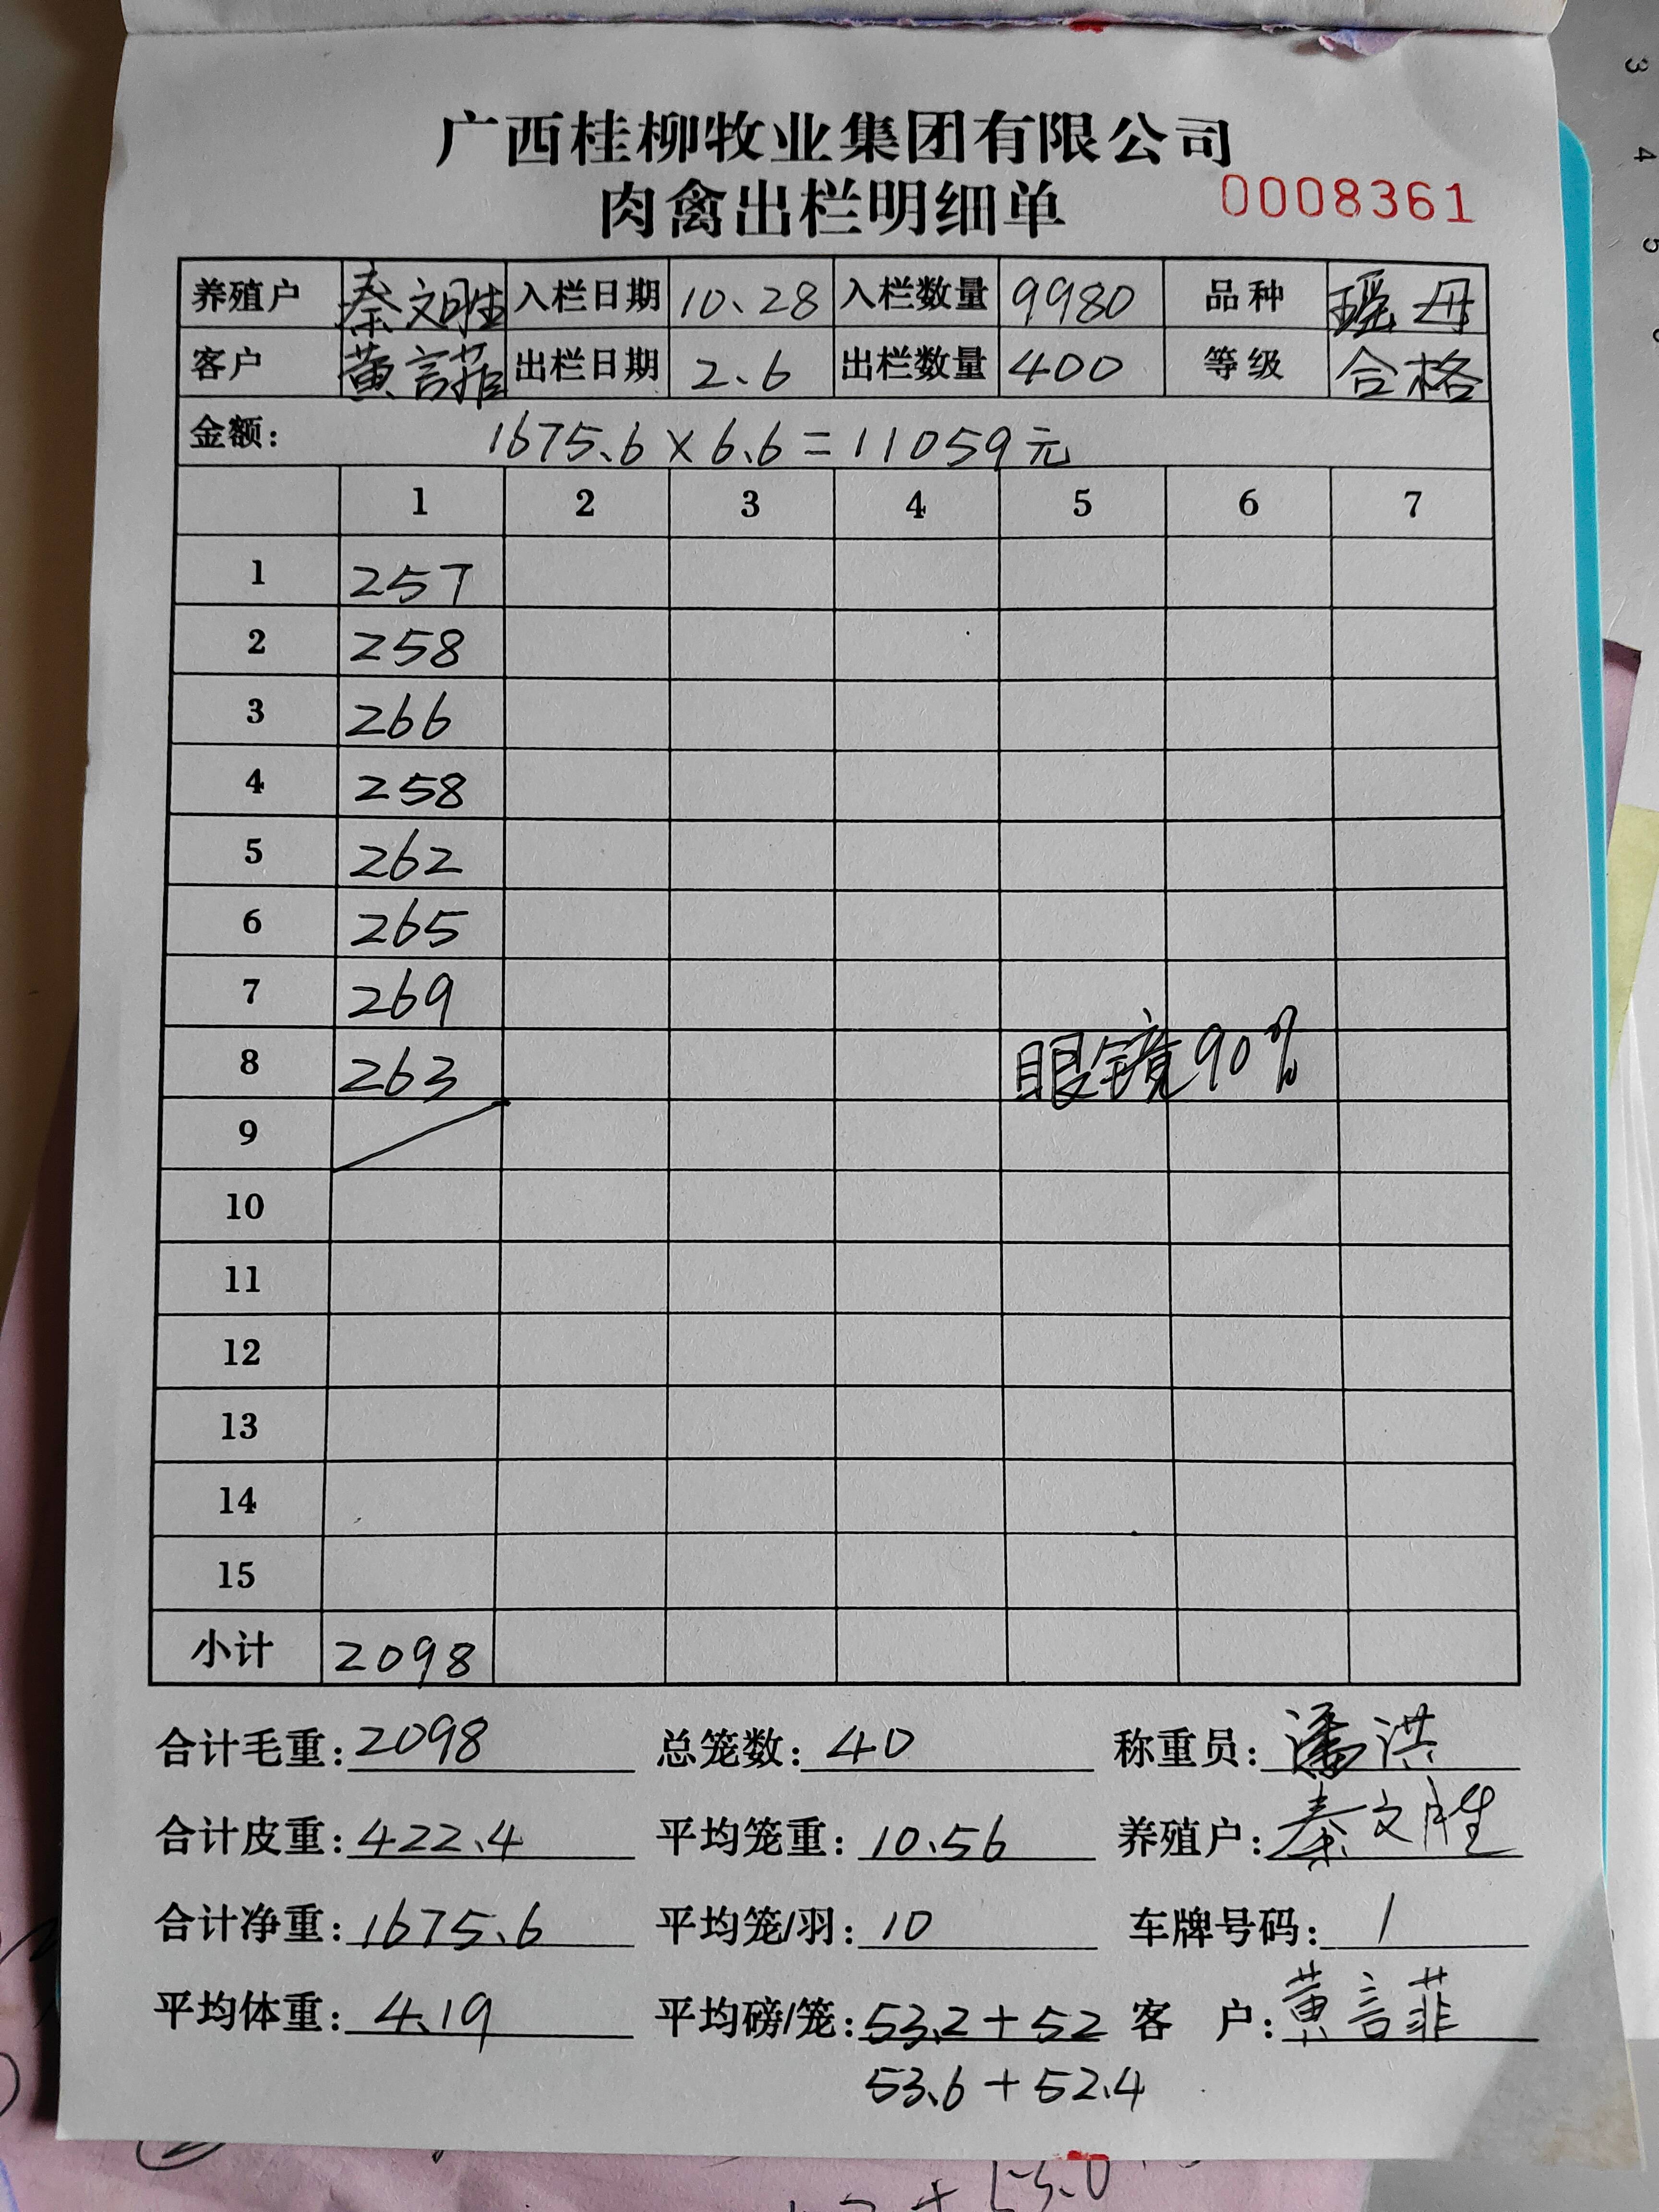 广西桂柳牧业集团有限公司
肉禽出栏明细单 0008361
养殖户 秦文胜 入栏日期 10.28 入栏数量 9980 品种 瑶母
客户 黄言菲 出栏日期 2.6 出栏数量 400 等级 合格
金额: 1675.6×6.6=11059元
1 2 3 4 5 6 7
1 257
2 258
3 266
4 258
5 262
6 265
7 269
8 263 眼镜90%
9
10
11
12
13
14
15
小计 2098
合计毛重:2098 总笼数:40 称重员:潘洪
合计皮重:422.4 平均笼重:10.56 养殖户:秦文胜
合计净重:1675.6 平均笼/羽:10 车牌号码:/
平均体重:4.19 平均磅/笼:53.2+52 客 户:黄言菲
53.6+52.4